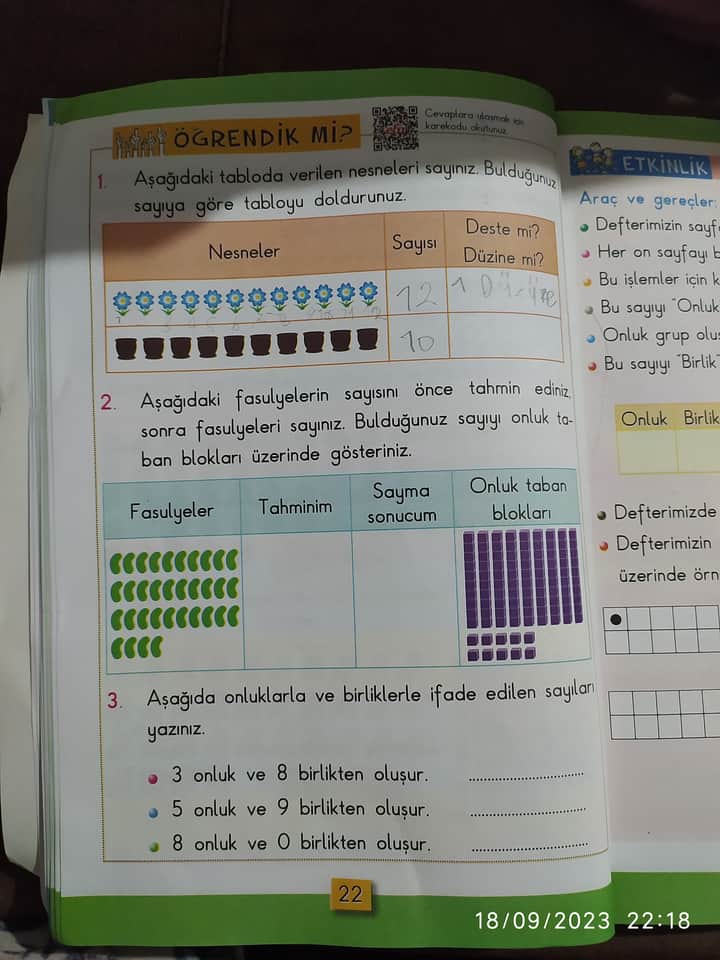 ÖĞRENDİK Mİ?
Cevaplara ulaşmak için
karekodu okutunuz.
1. Aşağıdaki tabloda verilen nesneleri sayınız. Bulduğunuz
sayıya göre tabloyu doldurunuz.
Nesneler
Sayısı
Deste mi?
Düzine mi?
12
1 Düzine
10
2. Aşağıdaki fasulyelerin sayısını önce tahmin ediniz,
sonra fasulyeleri sayınız. Bulduğunuz sayıyı onluk ta-
ban blokları üzerinde gösteriniz.
Fasulyeler
Tahminim
Sayma
sonucum
Onluk taban
blokları
3. Aşağıda onluklarla ve birliklerle ifade edilen sayıları
yazınız.
3 onluk ve 8 birlikten oluşur. ........................
5 onluk ve 9 birlikten oluşur. ........................
8 onluk ve 0 birlikten oluşur. ........................
22
ETKİNLİK
Araç ve gereçler:
Defterimizin sayf
Her on sayfayı b
Bu işlemler için k
Bu sayıyı "Onluk
Onluk grup oluş
Bu sayıyı "Birlik"
Onluk Birlik
Defterimizde
Defterimizin
üzerinde örn
18/09/2023 22:18